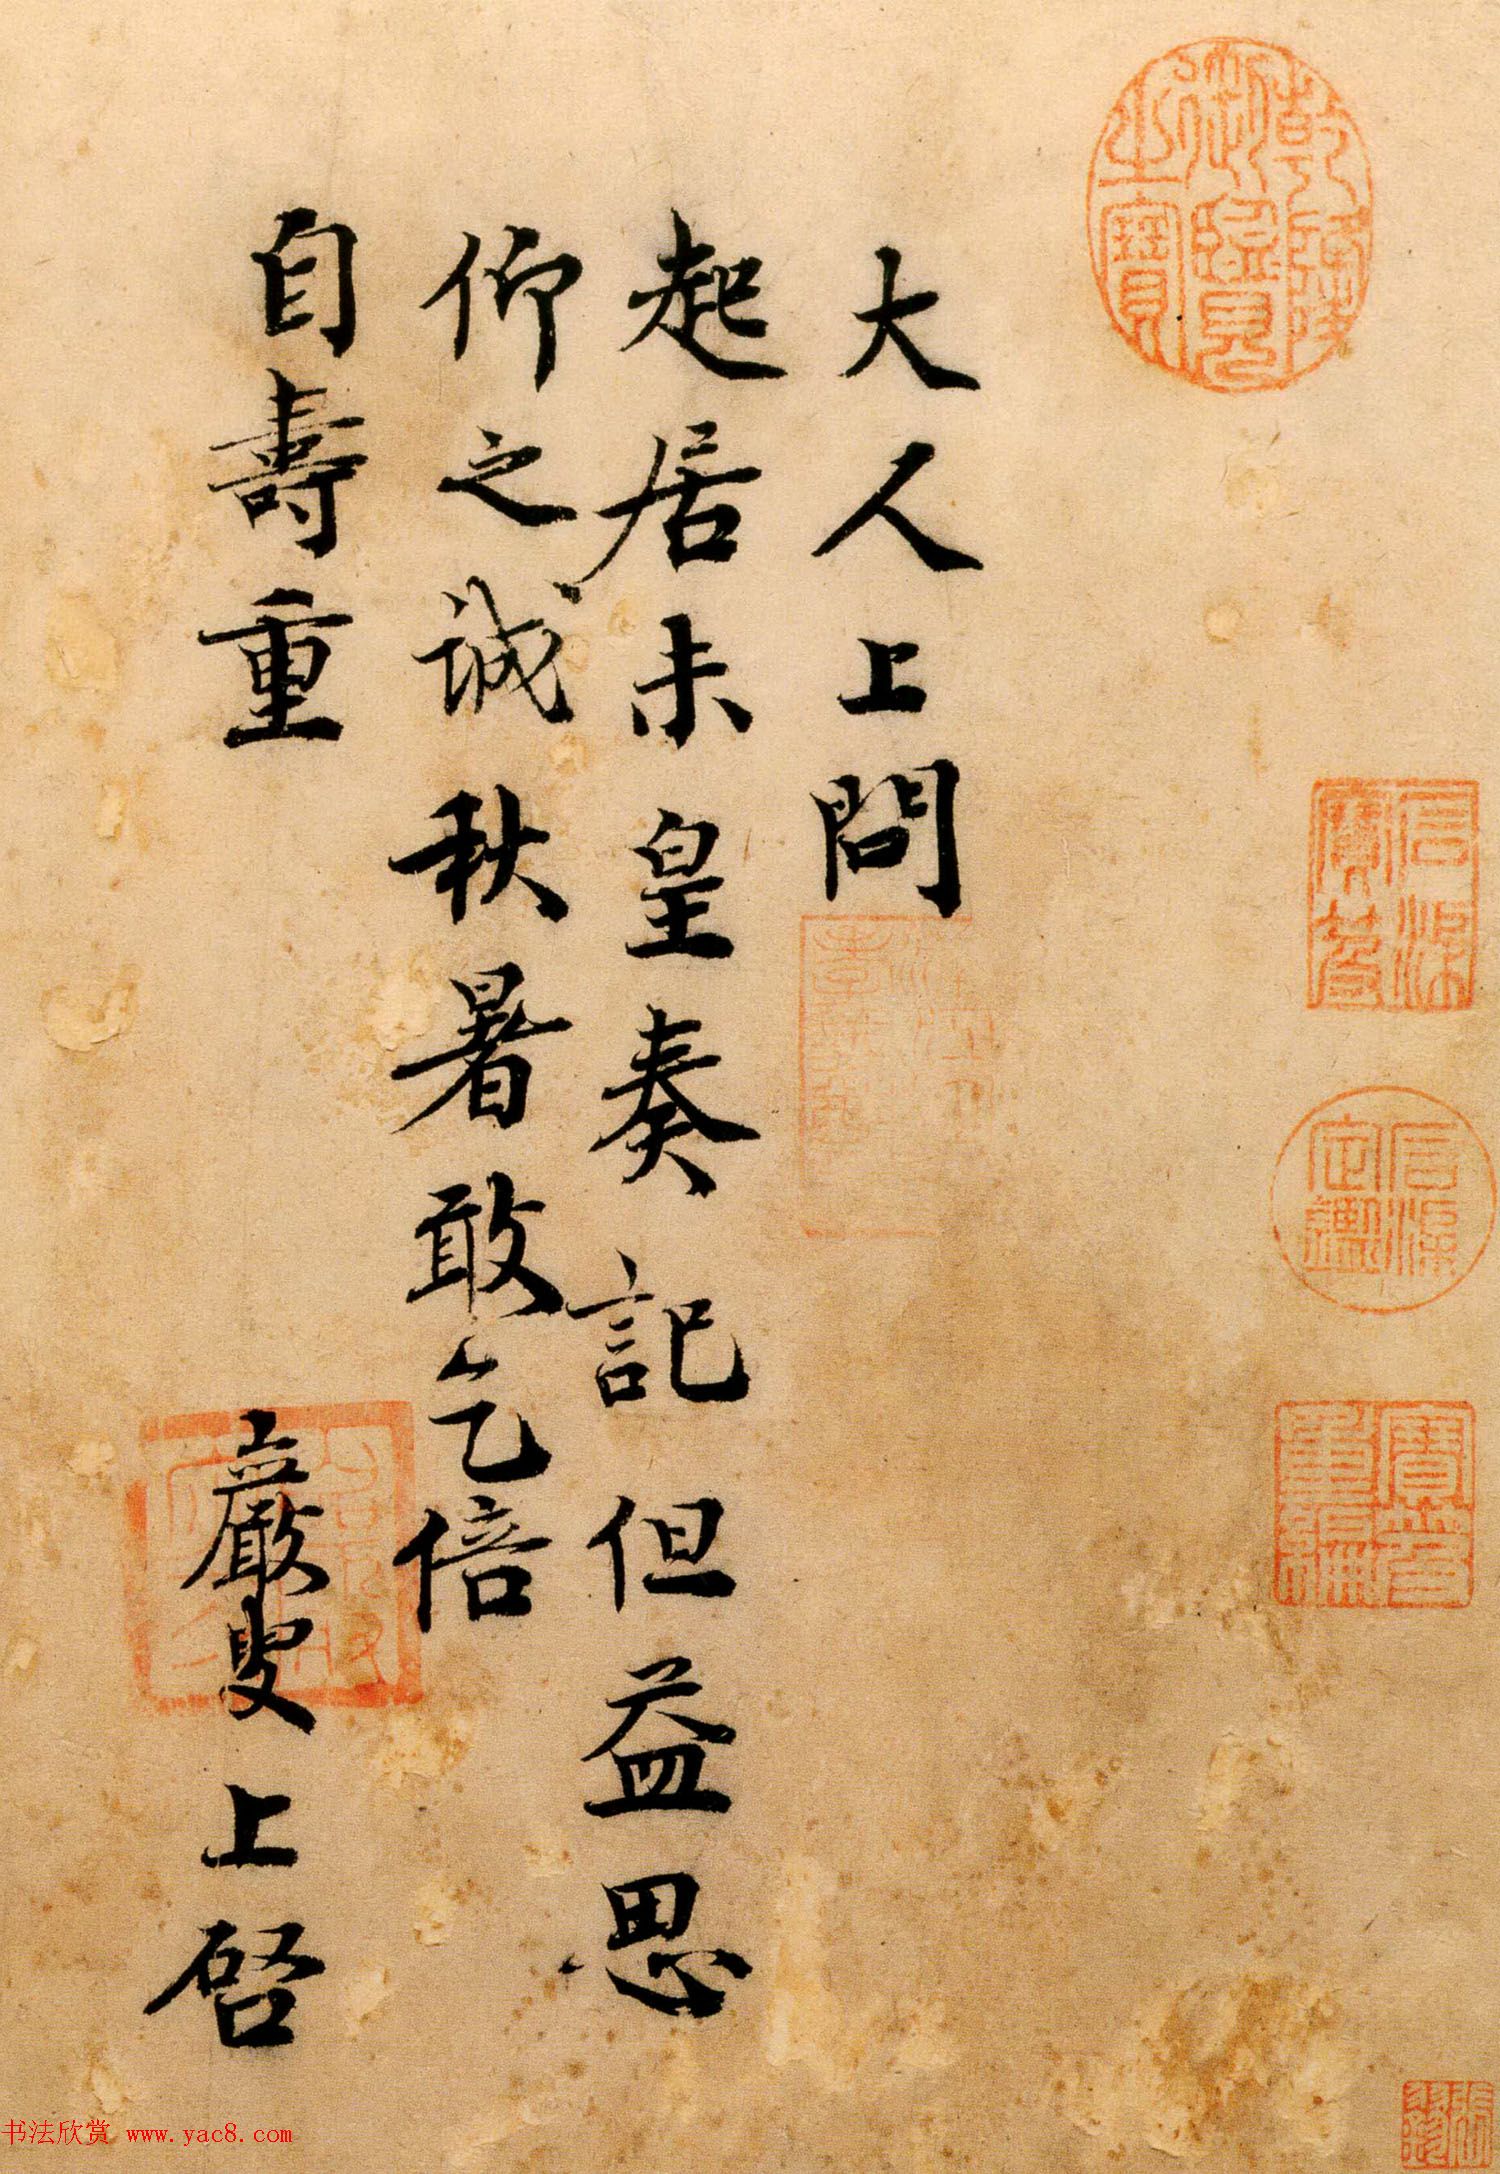 大人上問
起居未皇奏記但益思
仰之誠秋暑敢乞倍
自壽重
巖叟上啓
乾隆
御覽
之寶
石渠
寶笈
石渠
定鑑
寶笈
重編
书法欣赏 www.yac8.com